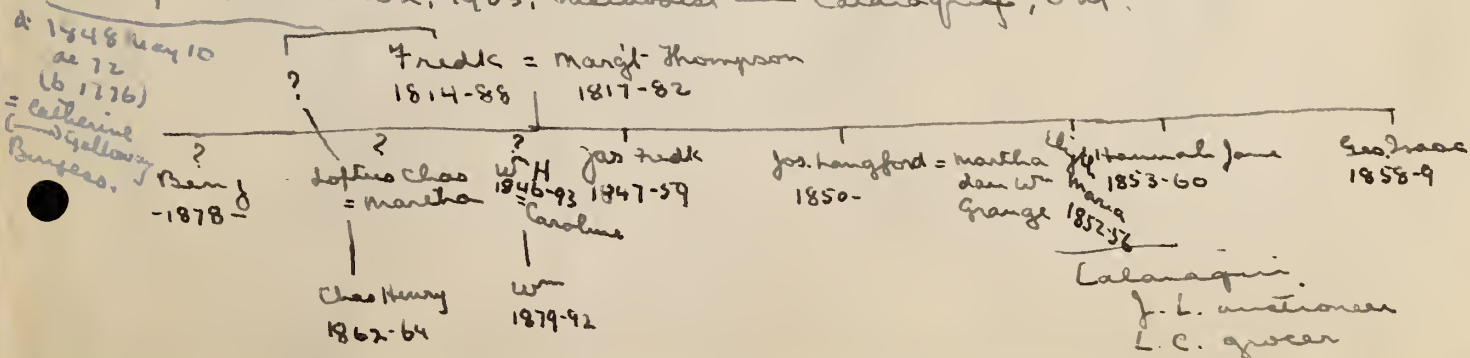 1903, Methodist — Cataraqui, Ont.
d. 1848 May 10
ae 72
(b 1776)
= Catherine
(—) Galloway
Burgess.
Fredk = Margt Thompson
1814-88 1817-82
?
? ? ?
Benj
-1878-
Loftus Chas
= Martha
Wm H
1846-93
= Caroline
Jas Fredk
1847-59
Jos. Langford = Martha
1850-
dau Wm
Grange
Maria
1852-56
Hannah Jane
1853-60
Geo. Isaac
1858-9
Chas Henry
1862-64
Wm
1879-92
Cataraqui
J. L. auctioneer
L. C. grocer